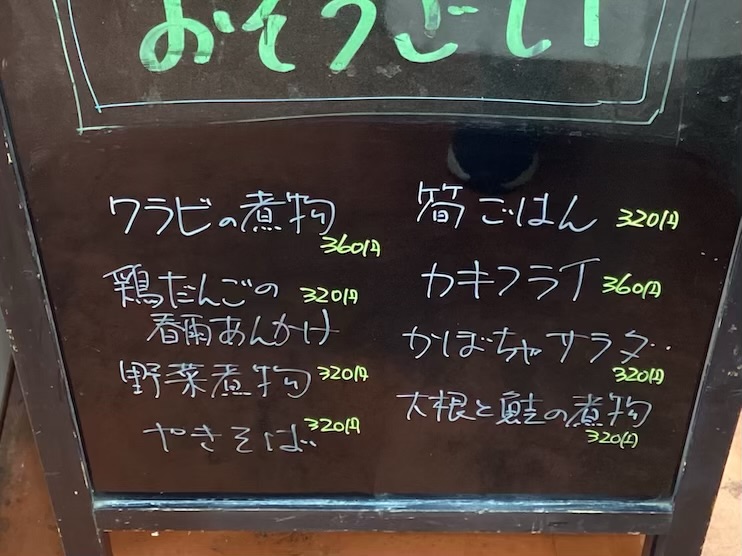 おそうざい
ワラビの煮物
360円
鶏だんごの 320円
春雨あんかけ
野菜煮物 320円
やきそば 320円
筍ごはん 320円
カキフライ 360円
かぼちゃサラダ
320円
大根と鮭の煮物
320円